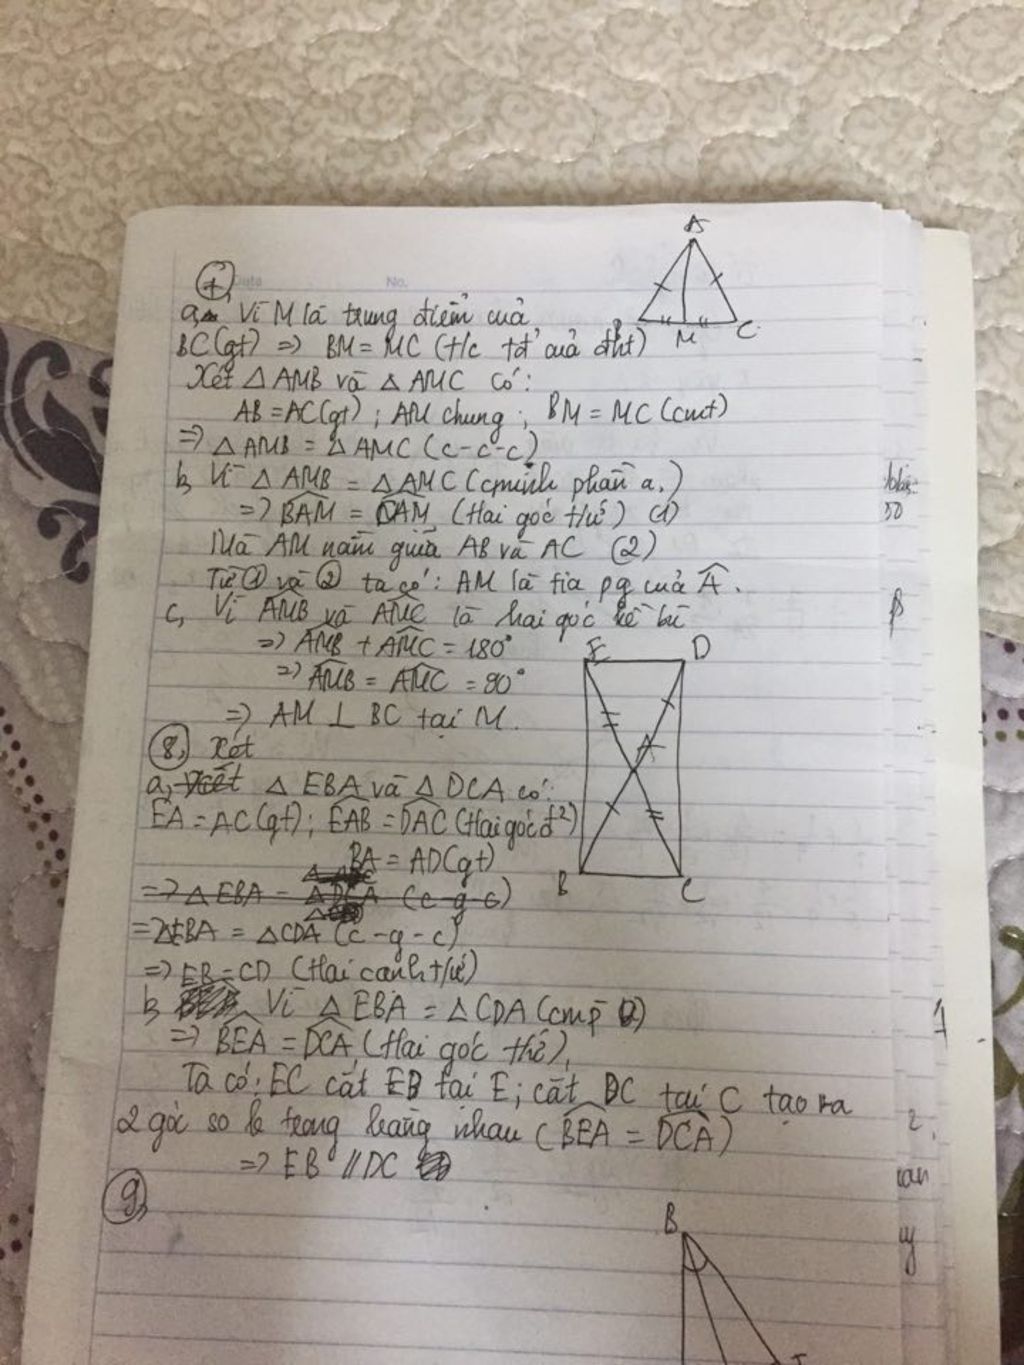 7,
Date No.
A
a, Vì M là trung điểm của
BC(gt) => BM = MC (t/c tđ của đht)
M C
Xét △ AMB và △ AMC có:
AB = AC(gt) ; AM chung ; BM = MC (cmt)
=> △ AMB = △ AMC (c-c-c)
b, Vì △ AMB = △ AMC (cminh phần a,)
=> BAM = CAM (Hai góc t/ứ) (1)
Mà AM nằm giữa AB và AC (2)
Từ ① và ② ta có: AM là tia pg của A.
c, Vì AMB và AMC là hai góc kề bù
=> AMB + AMC = 180°
=> AMB = AMC = 90°
=> AM ⊥ BC tại M.
E D
8, Xét
A
a, Xét △ EBA và △ DCA có:
EA = AC(gt) ; EAB = DAC (Hai góc đ²)
BA = AD(gt)
B C
=> △ EBA = △ DCA (c-g-c)
=> △EBA = △CDA (c-g-c)
=> EB = CD (Hai cạnh t/ứ)
b, Vì △ EBA = △ CDA (cmp a)
=> BEA = DCA (Hai góc thế),
Ta có: EC cắt EB tại E; cắt DC tại C tạo ra
2 góc so le trong bằng nhau (BEA = DCA)
=> EB // DC
9,
B